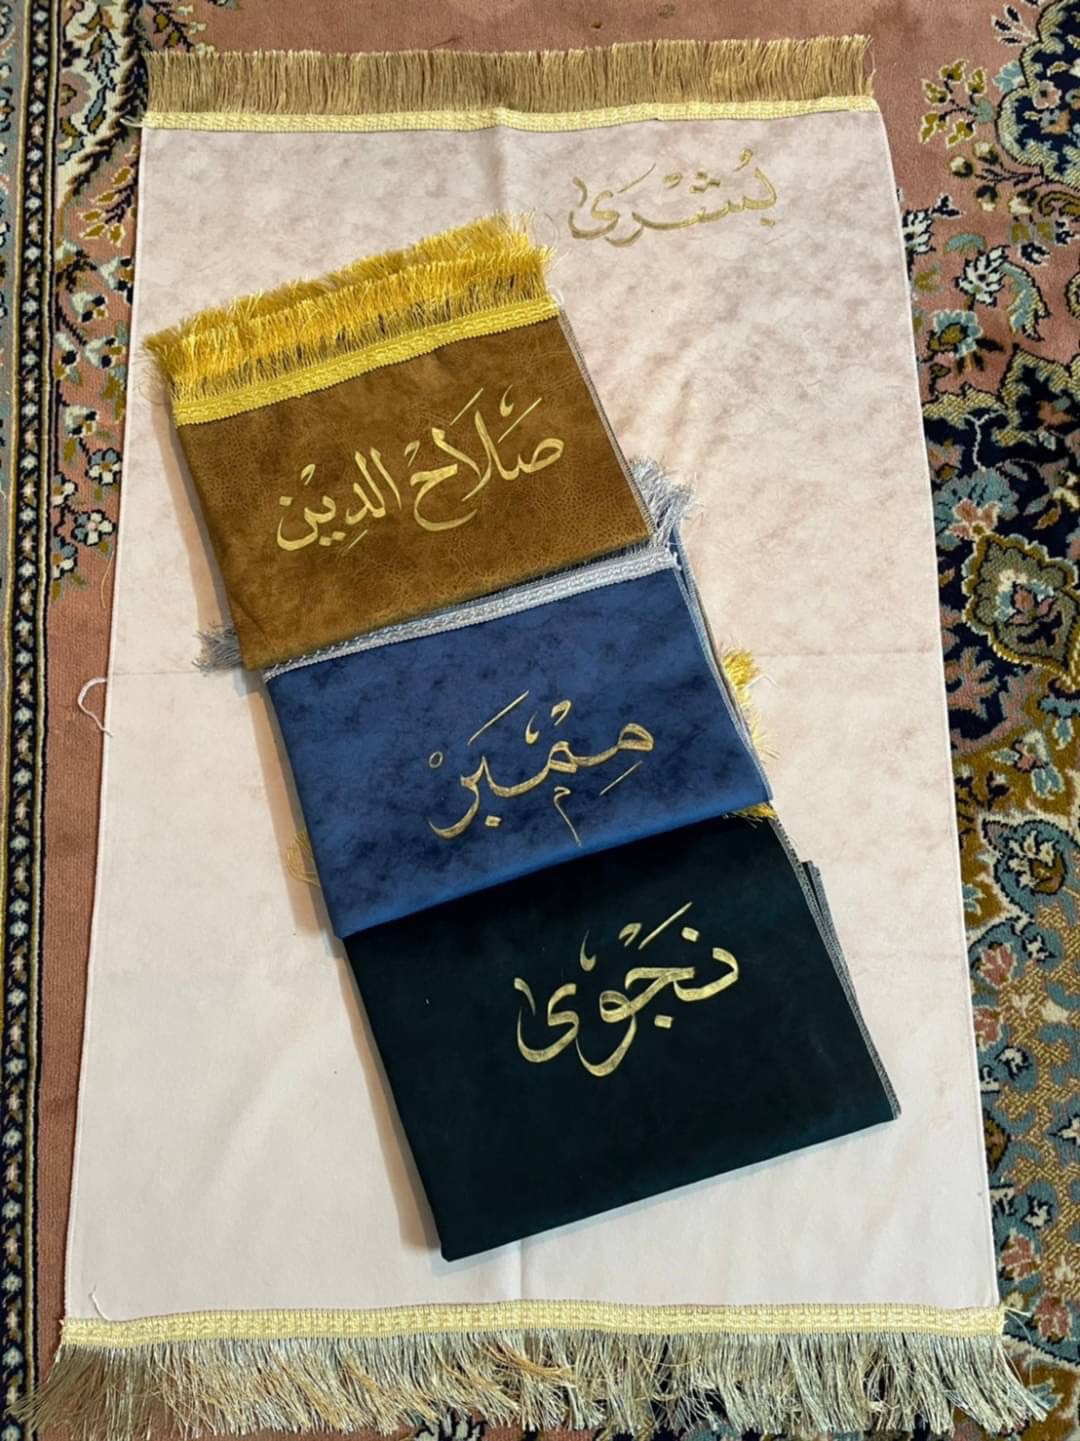 بُشْرَى
صَلَاحْ الدِيْن
مِمْبَرْ
نَجْوَى